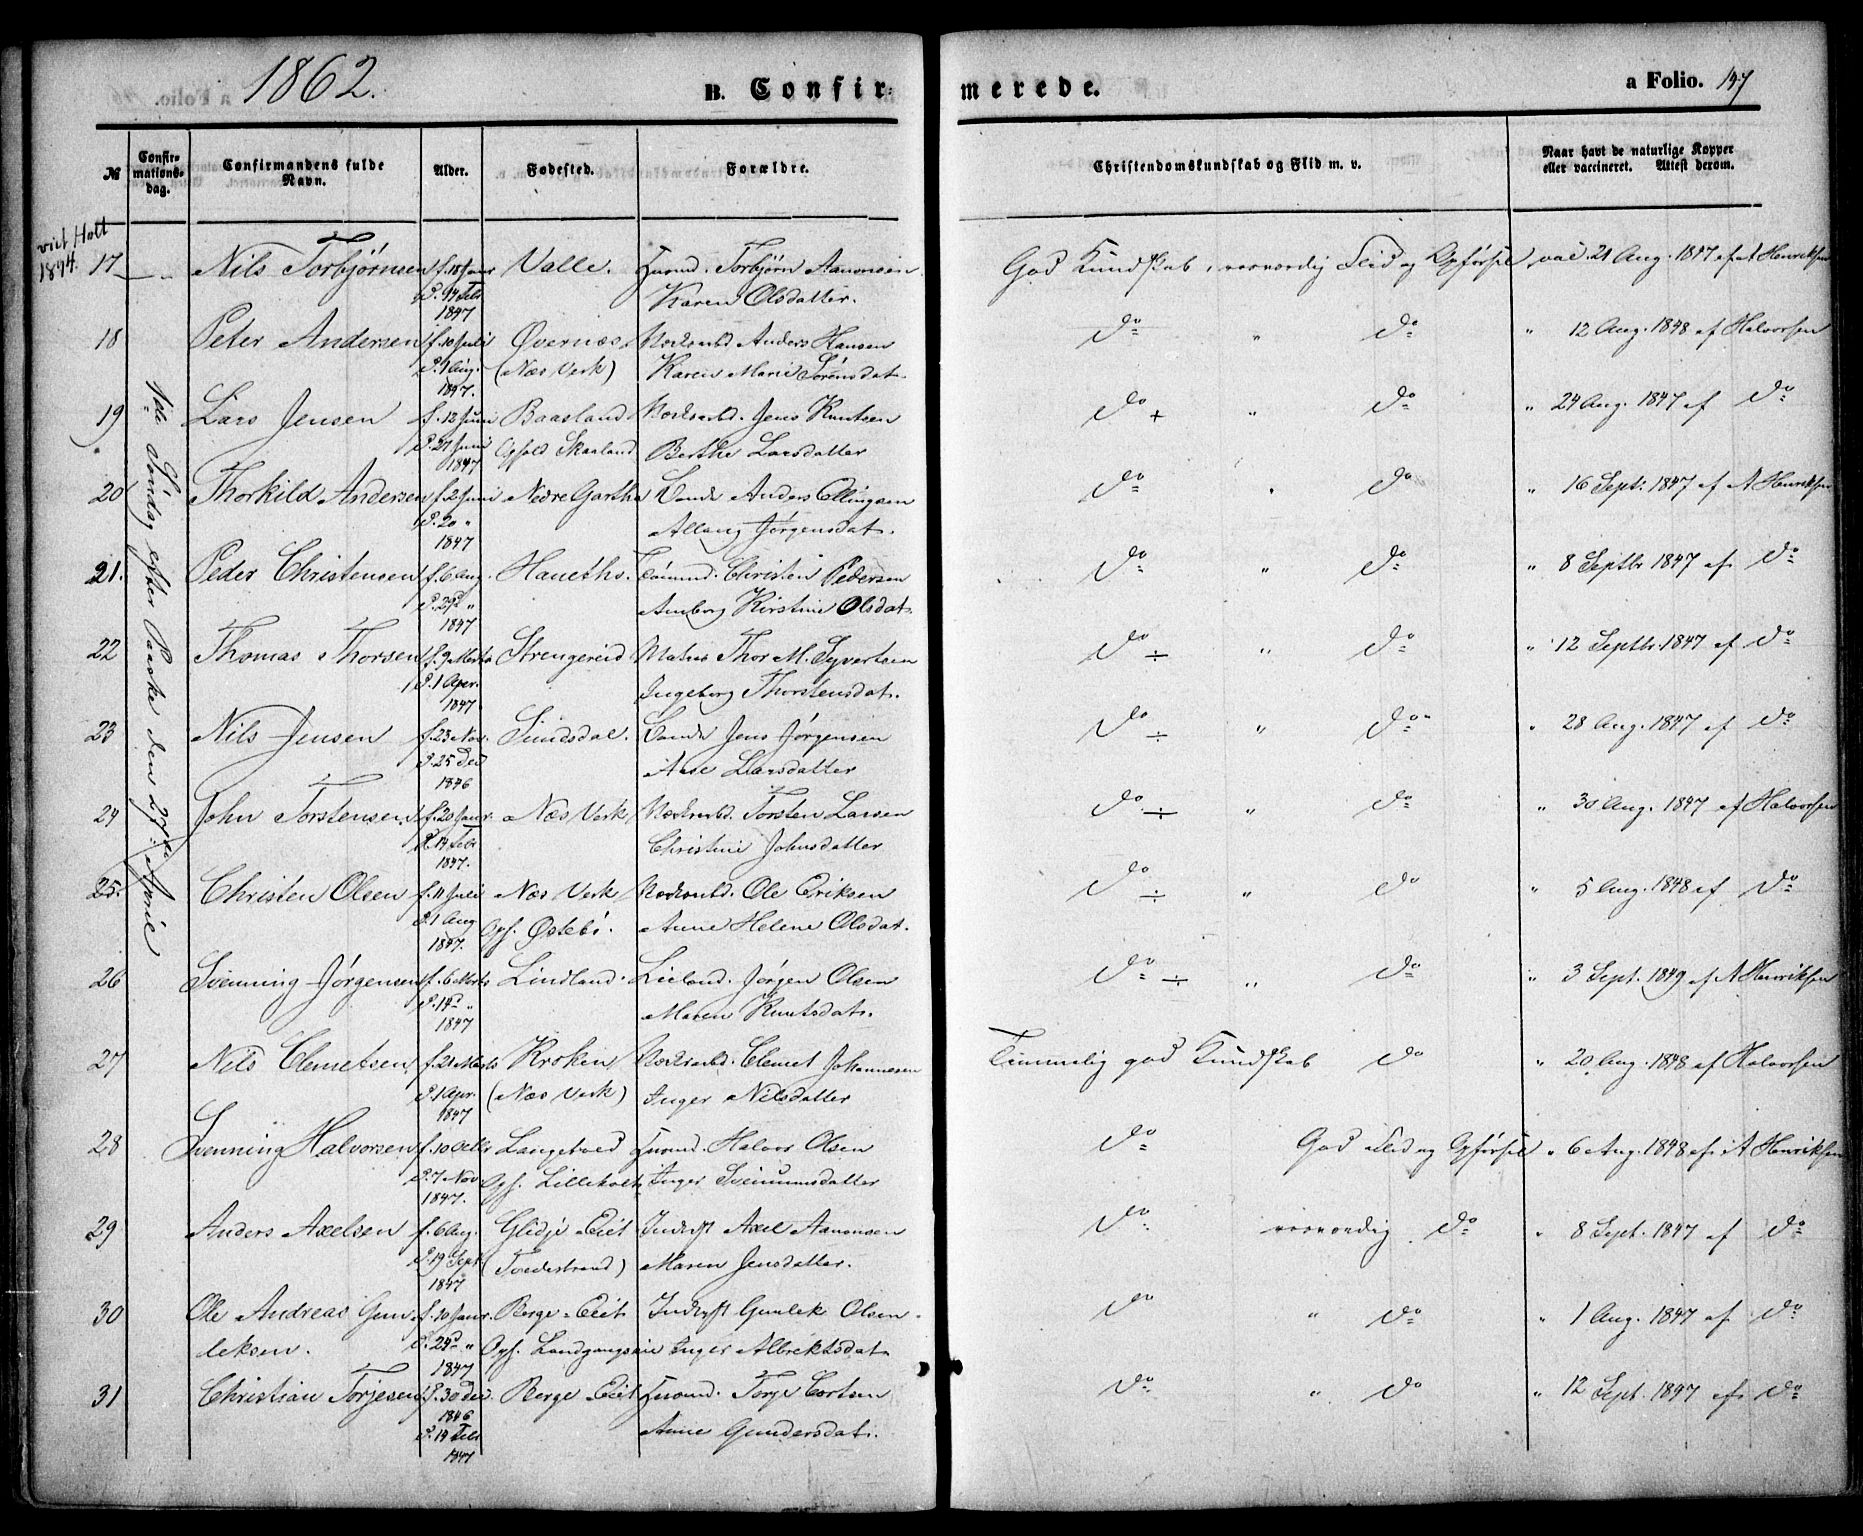 1862.
B. Confirmerede.
a Folio. 147
№
Confirmationsdag.
Confirmandens fulde Navn.
Alder.
Fødested.
Forældre.
Christendomskundskab og Flid m. v.
Naar havt de naturlige Kopper eller vaccineret. Attest derom.
viet Holt
1894.
2de Søndag efter Paaske den 27de April
17 Nils Torbjørnsen f. 18 Janr Valle. Torbjørn Aanonsen God Kundskab, roesværdig Flid og Opførsel, vac. 21 Aug. 1847 af A Henriksen
Febr Karen Olsdatter.
1847
18 Peter Andersen f. 10 Juli Øvernæs, Værksarbd. Anders Hansen do " do " 12 Aug. 1848 af Halvorsen
d. 1 Aug. (Næs Verk) Karen Marie Sørensdat.
1847.
19 Lars Jensen f. 12 Juni Baasland. Værksarbd. Jens Knutsen do + " do " 24 Aug. 1847 af do
d. 27 Juni Opfold Skaaland Berthe Larsdatter
1847
20 Thorkild Andersen f. 2 Juni Nedre Gartha Anders Ellingsen do " do " 16 Sept. 1847 af A Henriksen
d. 20 " Jørgensdat.
1847
21. Peder Christensen f. 6 Aug. Haneths. Christen Pedersen do " do " 8 Septbr 1847 af do
d. 29d " Kirstine Olsdat.
1847
22 Thomas Thorsen f. 9 Marts Strengereid Matros Thor M. Syvertsen do ÷ " do " 12 Septbr. 1847 af do
d. 1 Apr. Ingeborg Thorstensdat.
1847
23 Nils Jensen f. 23 Nov. Sundsdal. Jens Jørgensen do ÷ " do " 28 Aug. 1847 af do
d. 25 Dec Aase Larsdatter
1846
24 John Torstensen f. 20 Janr. Næs Verk, Værksarbd. Torsten Larsen do ÷ " do " 30 Aug. 1847 af Halvorsen
d. 14 Febr Christine Johnsdatter
1847.
25. Christen Olsen f. 11 Juli Næs Verk Værksarbd. Ole Eriksen do ÷ " do " 5 Aug. 1848 af do
d. 1 Aug Opf. Østebø. Anne Helene Olsdat.
1847.
26 Svenning Jørgensen f. 6 Marts Lindland. Jørgen Olsen do ÷ " do " 3 Sept. 1849 af A Henriksen
d. 14d " Maren Knutsdat.
1847
27 Nils Clemetsen f. 21 Marts Kroken Værksarbd. Clemet Johannesen Temmelig god Kundskab do " 20 Aug. 1848 af Halvorsen
d. 1 Apr. (Næs Verk) Inger Nilsdatter
1847
28 Svenning Halvorsen f. 10 Octbr Langetved Halvor Olsen do God Flid og Opførsel " 6 Aug. 1848 af A Henriksen
d. 7 Nov Opf. Lilleholt Inger
1847.
29 Anders Axelsen f. 6 Aug. Glidje Eiet Inderst Axel Aanonsen do roesværdig do " 8 Sept. 1847 af do
d. 19 Sept (Tvedestrand) Maren Jensdatter.
1847
30 Ole Andreas Gun f. 10 Janr Berge-Eiet Inderst Gunlek Olsen do " do " 1 Aug. 1847 af do
leksen. d. 24d " Opf. Inger Albrektsdat.
1847
31 Christian Torjesen f. 30 Dec. Berge Eiet Torje do " do " 12 Sept. 1847 af do
1846 Anne Gundersdat.
d. 14 Febr
1847